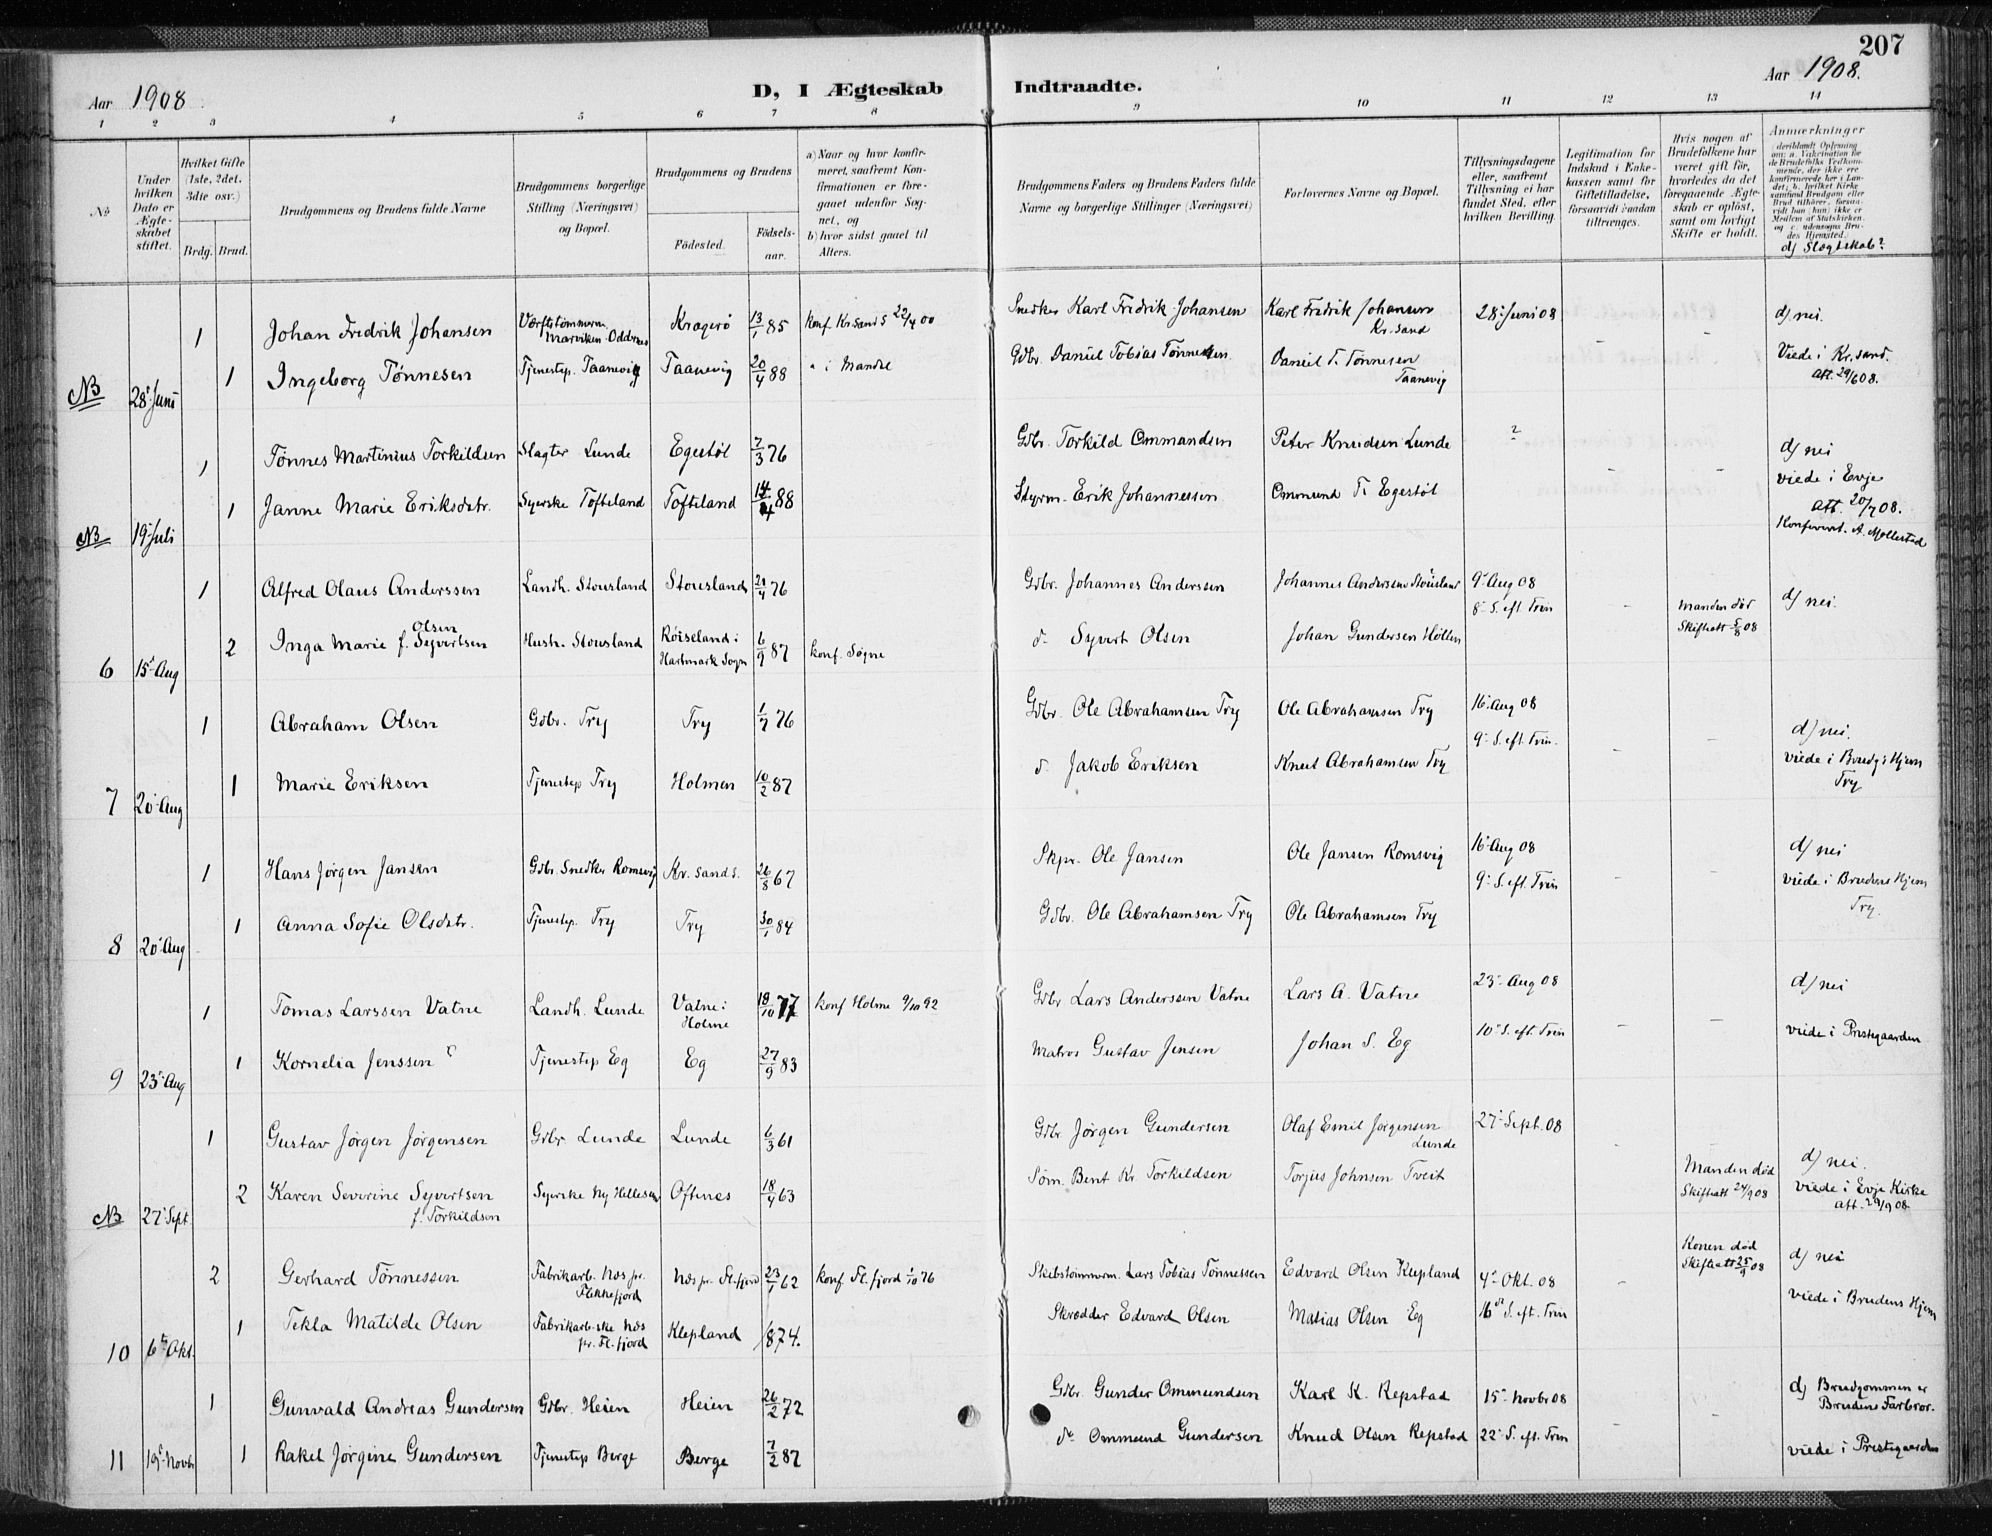 207
Aar 1908.
D, I Ægteskab Indtraadte.
Aar 1908.
1 2 3 4 5 6 7 8 9 10 11 12 13 14
No.
Under hvilken Dato er Ægteskabet stiftet.
Hvilket Gifte (1ste, 2det, 3die osv.)
Brdg. Brud.
Brudgommens og Brudens fulde Navne
Brudgommens borgerlige Stilling (Næringsvei) og Bopæl.
Brudgommens og Brudens
Fødested.
Fødselsaar.
a) Naar og hvor konfirmeret, saafremt Konfirmationen er foregaaet udenfor Sognet, og
b) hvor sidst gaaet til Alters.
Brudgommens Faders og Brudens Faders fulde Navne og borgerlige Stillinger (Næringsvei)
Forlovernes Navne og Bopæl.
Tillysningsdagene eller, saafremt Tillysning ei har fundet Sted, efter hvilken Bevilling.
Legitimation for Indskud i Enkekassen samt for Giftetilladelse, forsaavidt saadan tiltrænges.
Hvis nogen af Brudefolkene har været gift før, hvorledes da det foregaaende Ægteskab er opløst, samt om lovligt Skifte er holdt.
Anmærkninger
deriblandt Oplysning om: a. Vakcination for de Brudefolks Vedkommende, der ikke ere konfirmerede her i Landet; b. hvilket Kirkesamfund Brudgom eller Brud tilhører, forsaavidt han (hun) ikke er Medlem af Statskirken, og c. udensogns Brudes Hjemsted.
d) Slægtskab?
1 Johan Fredrik Johansen Værftstømmerm. Marviken Oddernes Kragerø 13/1 85 konf. Kr.sand S 22/4 00 Snedker Karl Fridrik Johansen Karl Fridrik Johansen Kr.sand 28' Juni 08 - - d) nei.
NB 28' Juni 1 Ingeborg Tønnesen Tjenestep. Taanevig Taanevig 20/4 88 " i Mandal Gdbr. Daniel Tobias Tønnesen. Daniel T. Tønnesen Taanevig Viede i Kr.sand. Att. 29/6 08.
1 Tønnes Martinius Torkildsen Slagter Lunde Egestøl 7/3 76 Gdbr. Torkild Ommundsen Peter Knudsen Lunde ? - - d) nei
NB 19' Juli 1 Janne Marie Eriksdtr. Syerske Tofteland Tofteland 14/4 88 Styrm. Erik Johannessen Ommund T. Egestøl viede i Evje Att. 20/7 08. Konfereret. A. Møllerstad
1 Alfred Olaus Anderssen Landh. Stousland Stousland 20/4 76 Gdbr. Johannes Anderssen Johannes Anderssen Stousland 9' Aug 08 8' S. eft. Trin - d) nei.
6 15' Aug 2 Inga Marie Olsen f. Syvertsen Hustr. Stousland Røiseland i Hartmark Sogn 6/9 87 konf. Søgne d. Syvert Olsen Johan Gundersen Høllen Manden død Skifteatt 5/8 08
1 Abraham Olsen Gdbr. Try Try 1/7 76 Gdbr. Ole Abrahamsen Try Ole Abrahamsen Try 16' Aug 08 9' S. eft. Trin. - - d) nei.
7 20' Aug 1 Marie Eriksen Tjenestep Try Holmen 10/2 87 d. Jakob Eriksen Knut Abrahamsen Try viede i Brudg's Hjem Try
1 Hans Jørgen Jansen Gdbr. Snedker Romsvig Kr. sand S. 26/8 67 Skpr. Ole Jansen Ole Jansen Romsvig 16' Aug 08 9' S. eft. Trin - - d) nei
8 20' Aug 1 Anna Sofie Olsdtr. Tjenestep. Try Try 30/1 84 Gdbr. Ole Abrahamsen Try Ole Abrahamsen Try viede i Brudens Hjem Try.
1 Tomas Larssen Vatne Landh. Lunde Vatne i Holme 18/10 77 konf Holme 9/10 92 Gdbr Lars Anderssen Vatne Lars A. Vatne 23' Aug 08 10' S. eft Trin - - d) nei
9 23' Aug 1 Kornelia Jenssen Tjenestep Eg Eg 27/9 83 Matros Gustav Jensen Johan S. Eg viede i Prestegaarden
1 Gustav Jørgen Jørgensen Gdbr Lunde Lunde 6/3 61 Gdbr Jørgen Gundersen Olaf Emil Jørgensen Lunde 27' Sept. 08 - d) nei.
NB 27' Sept 2 Karen Severine Syvertsen f. Torkildsen Syerske Ny Hellesund Oftenes 18/4 63 Søm. Bent Kr. Torkildsen Torjus Johnsen Tveit Manden død Skifteatt 24/9 08 viede i Evje Kirke Att. 29/9 08.
2 Gerhard Tønnessen Fabrikarb. Næs pr. Flekkefjord Næs pr. Fl.fjord 23/1 62 konf Fl.fjord 1/10 76 Skibstømmerm. Lars Tobias Tønnessen Edvard Olsen Klepland 4' Okt. 08 16de S. eft. Trin - Konen død Skifteatt 25/9 08 d) nei
10 6te Okt. 1 Tekla Matilde Olsen Fabrikarb.ske Næs pr. Fl.fjord Klepland 1/8 74. Skrædder Edvard Olsen Matias Olsen Eg viede i Brudens Hjem
1 Gunvald Andreas Gundersen Gdbr. Heien Heien 26/2 72 Gdbr. Gunder Ommundsen Karl K. Repstad 15' Novbr 08 - - d) Brudgommen er Brudens Farbror.
11 19' Novbr 1 Rakel Jørgine Gundersen Tjenestep Berge Berge 7/2 87 do Ommund Gundersen Knud Olsen Repstad 22' S. eft. Trin viede i Prestegaarden